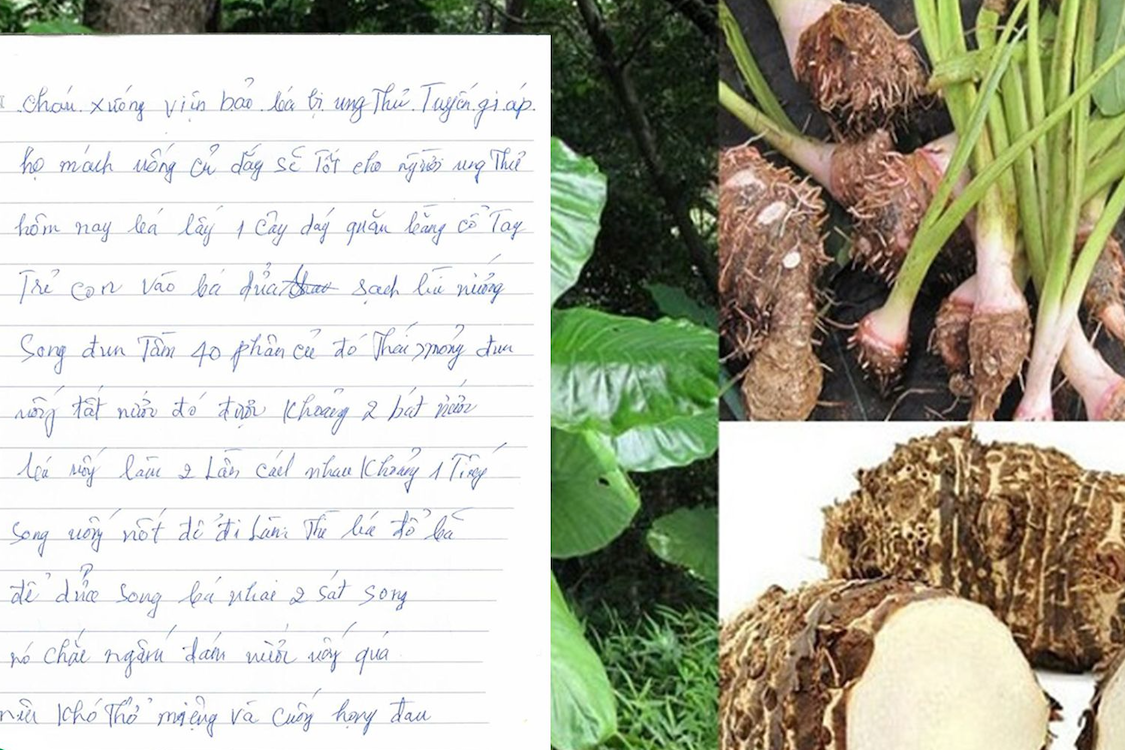 cháu xuống viện bảo bá bị ung Thư Tuyến giáp.
họ mách uống củ dáy sẽ Tốt cho người ung Thư
hôm nay bá lấy 1 cây dáy quãn bằng cổ Tay
Trẻ con vào bá đủa sạch lùi nướng
Song đun Tầm 40 phần củ đó Thái mỏng đun
uống tất nước đó được Khoảng 2 bát nước
bá uống làm 2 Lần cách nhau Khoảng 1 Tiếng
song uống nốt để đi Làm. Thì bá đổ bã
để song bá nhai 2 sát song
nó chắc ngấm đám nước uống quá
Khó Thở miệng và cuống họng đau